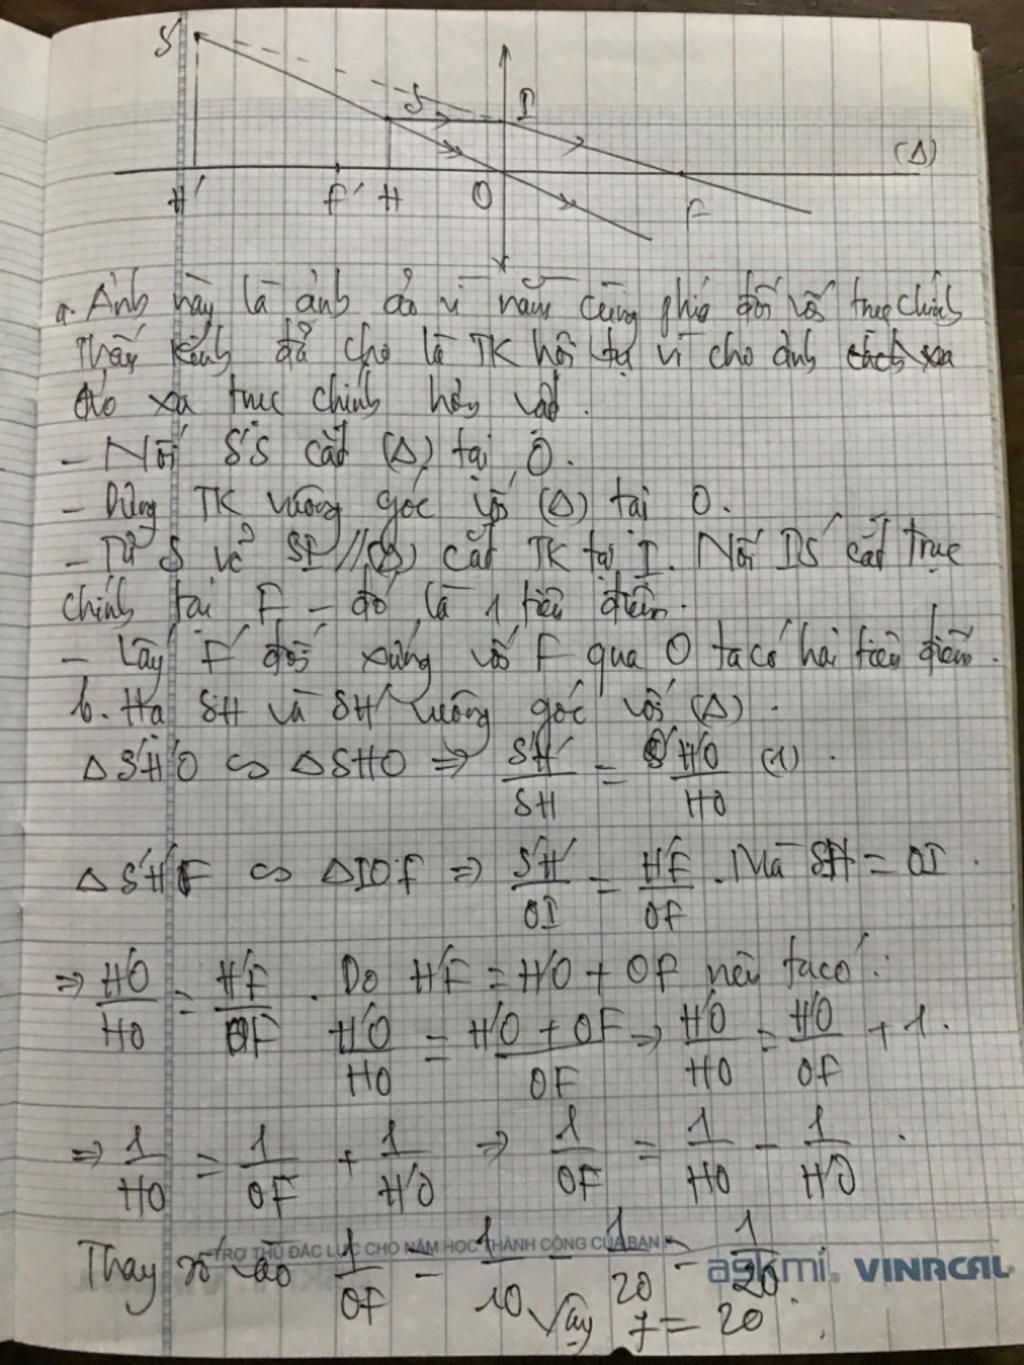 S'
S
I
(Δ)
H'
F'
H
O
F
a. Ảnh này là ảnh ảo vì nằm cùng phía đối với trục chính
Thấu kính đã cho là TK hội tụ vì cho ảnh
ảo xa trục chính hơn vật.
- Nối S'S cắt (Δ) tại O.
- Dựng TK vuông góc với (Δ) tại O.
- Từ S vẽ SI // (Δ) cắt TK tại I. Nối IS' cắt trục
chính tại F - đó là 1 tiêu điểm.
- Lấy F' đối xứng với F qua O ta có hai tiêu điểm.
b. Hạ SH và S'H' vuông góc với (Δ).
ΔS'H'O ∽ ΔSHO ⇒ S'H'/SH = H'O/HO (1).
ΔS'H'F ∽ ΔIOF ⇒ S'H'/OI = H'F/OF. Mà SH = OI.
⇒ H'O/HO = H'F/OF. Do H'F = H'O + OF nên ta có:
H'O/HO = H'O + OF/OF ⇒ H'O/HO = H'O/OF + 1.
⇒ 1/HO = 1/OF + 1/H'O ⇒ 1/OF = 1/HO - 1/H'O.
TRỢ THỦ ĐẮC LỰC CHO NĂM HỌC THÀNH CÔNG CỦA BẠN
askmi. VINACAL
Thay số vào 1/OF = 1/10 - 1/20 = 1/20.
Vậy f = 20